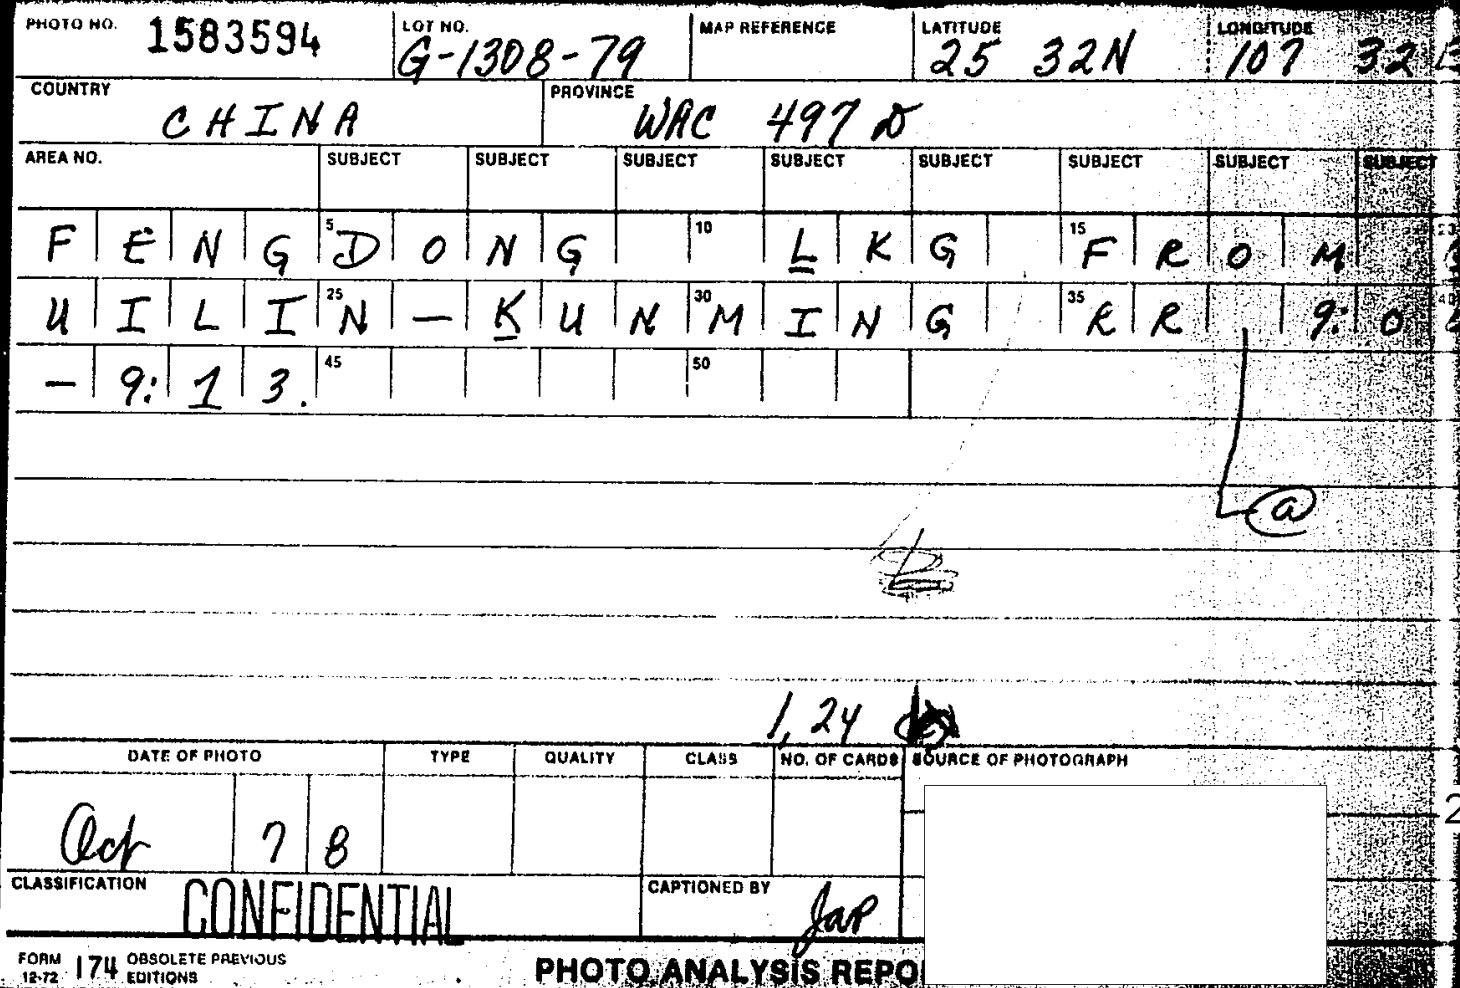 PHOTO NO. 1583594 LOT NO. G-1308-79 MAP REFERENCE LATITUDE 25 32N LONGITUDE 107 32E
COUNTRY CHINA PROVINCE WAC 497 D
AREA NO. SUBJECT SUBJECT SUBJECT SUBJECT SUBJECT SUBJECT SUBJECT SUBJECT
FENG 5 DONG 10 LKG 15 FROM 20
UILI 25 N-KUN 30 MING 35 RR 9:0 40
-9:13. 45 50
a
1,24
DATE OF PHOTO TYPE QUALITY CLASS NO. OF CARDS SOURCE OF PHOTOGRAPH
Oct 78
2
CLASSIFICATION CONFIDENTIAL CAPTIONED BY JAP
FORM 12-72 174 OBSOLETE PREVIOUS EDITIONS PHOTO ANALYSIS REPO